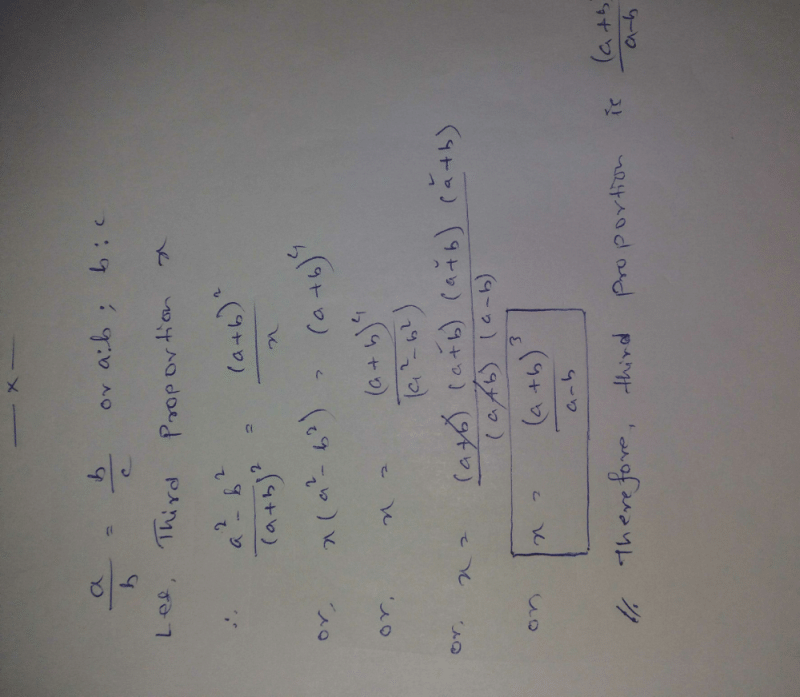 — x —
a/b = b/c or a:b ; b:c
Let, Third Proportion x
∴ a² - b² / (a+b)² = (a+b)² / x
or, x(a² - b²) = (a+b)⁴
or, x = (a+b)⁴ / (a² - b²)
or, x = (a+b) (a+b) (a+b) (a+b) / (a+b) (a-b)
or x = (a+b)³ / a-b
// Therefore, third proportion is (a+b) / a-b